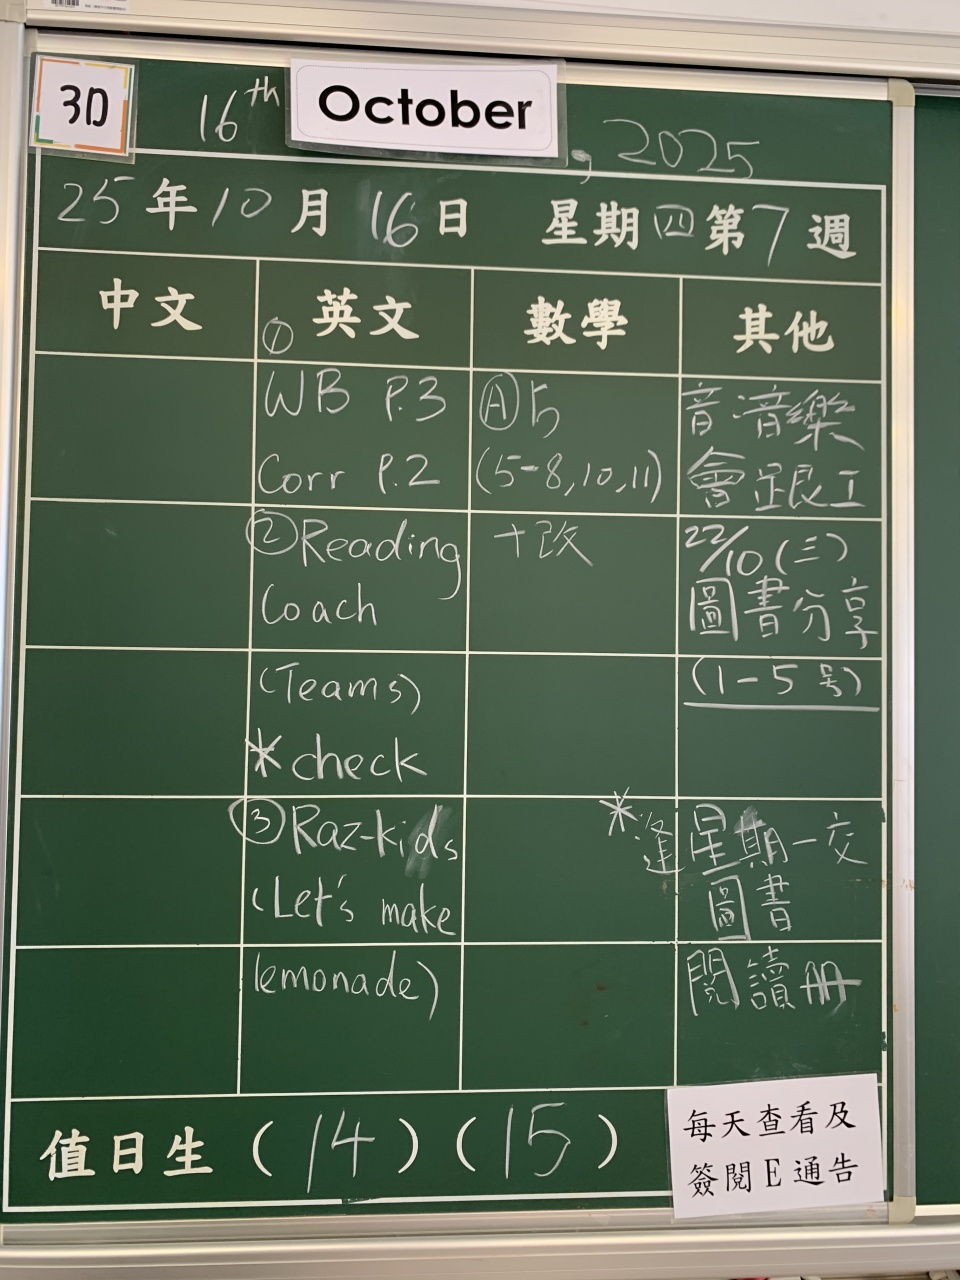 3D
16th October, 2025
25年10月16日 星期四第7週
中文 英文 數學 其他
①
WB P.3
Corr P.2
②Reading
Coach
(Teams)
*check
③Raz-kids
(Let's make
lemonade)
Ⓐ5
(5-8,10,11)
+改
音:音樂
會跟工
22/10(三)
圖書分享
(1-5号)
*逢星期一交
圖書
閱讀冊
值日生(14)(15)
每天查看及
簽閱E通告